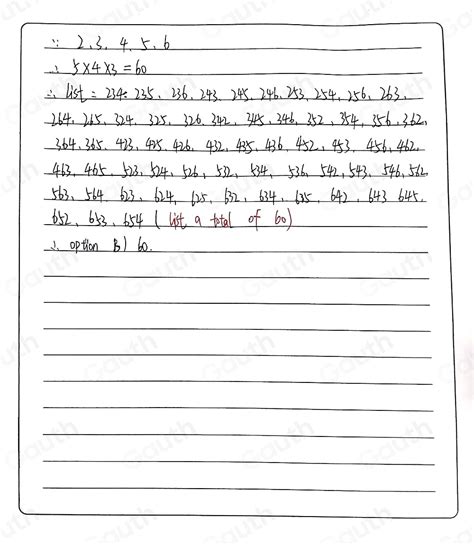 ∵ 2, 3, 4, 5, 6
∴ 5×4×3=60
∴ list = 234, 235, 236, 243, 245, 246, 253, 254, 256, 263,
264, 265, 324, 325, 326, 342, 345, 346, 352, 354, 356, 362,
364, 365, 423, 425, 426, 432, 435, 436, 452, 453, 456, 462,
463, 465, 523, 524, 526, 532, 534, 536, 542, 543, 546, 562,
563, 564, 623, 624, 625, 632, 634, 635, 642, 643, 645,
652, 653, 654 ( list a total of 60)
∴ option B) 60.